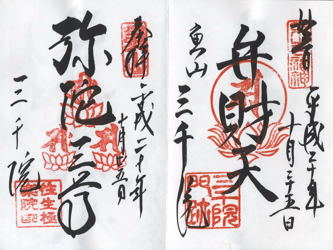 平成二十年
十月二十五日
弁財天
魚山
三千院
三千院
門跡
奉拝
平成二十年
十月二十五日
弥陀三尊
三千院
往生極
楽院印